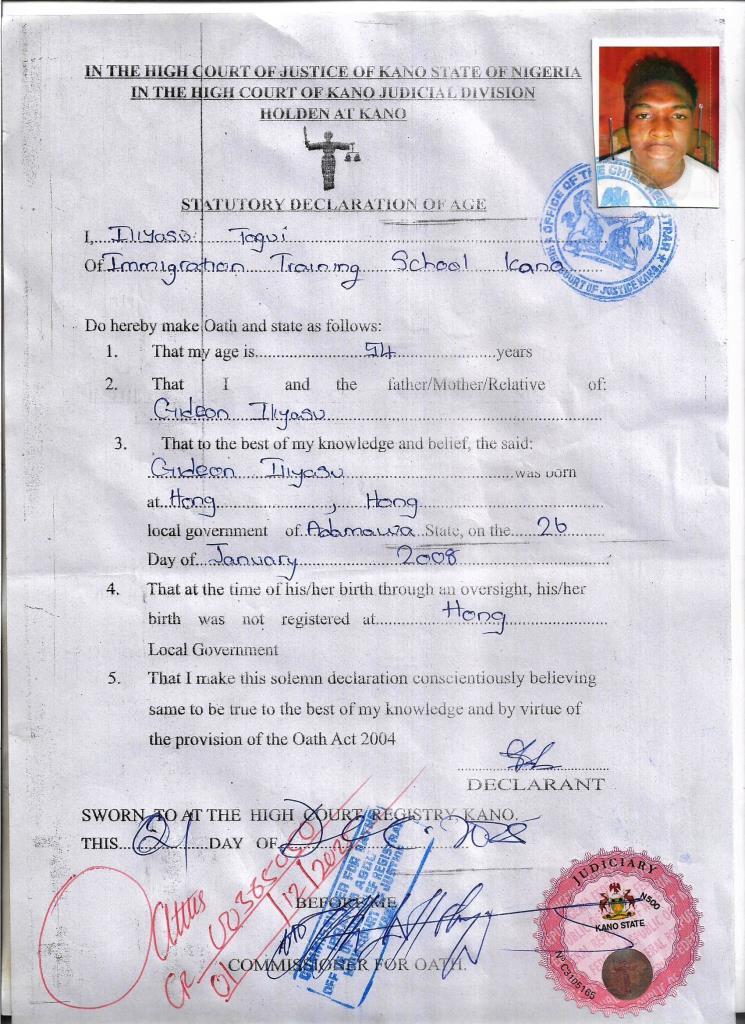 IN THE HIGH COURT OF JUSTICE OF KANO STATE OF NIGERIA
IN THE HIGH COURT OF KANO JUDICIAL DIVISION
HOLDEN AT KANO
STATUTORY DECLARATION OF AGE
OFFICE OF THE CHIEF REGISTRAR
HIGH COURT OF JUSTICE KANO
I, Iliyasu Togui
Of Immigration Training School Kano
Do hereby make Oath and state as follows:
1. That my age is 54 years
2. That I and the father/Mother/Relative of:
Gideon Iliyasu
3. That to the best of my knowledge and belief, the said:
Gideon Iliyasu was born
at Hong, Hong
local government of Adamawa State, on the 26
Day of January 2008
4. That at the time of his/her birth through an oversight, his/her
birth was not registered at Hong
Local Government
5. That I make this solemn declaration conscientiously believing
same to be true to the best of my knowledge and by virtue of
the provision of the Oath Act 2004
DECLARANT
SWORN TO AT THE HIGH COURT REGISTRY KANO.
THIS DAY OF Dec.
CR
BEFORE ME
COMMISSIONER FOR OATH.
JUDICIARY
N500
KANO STATE